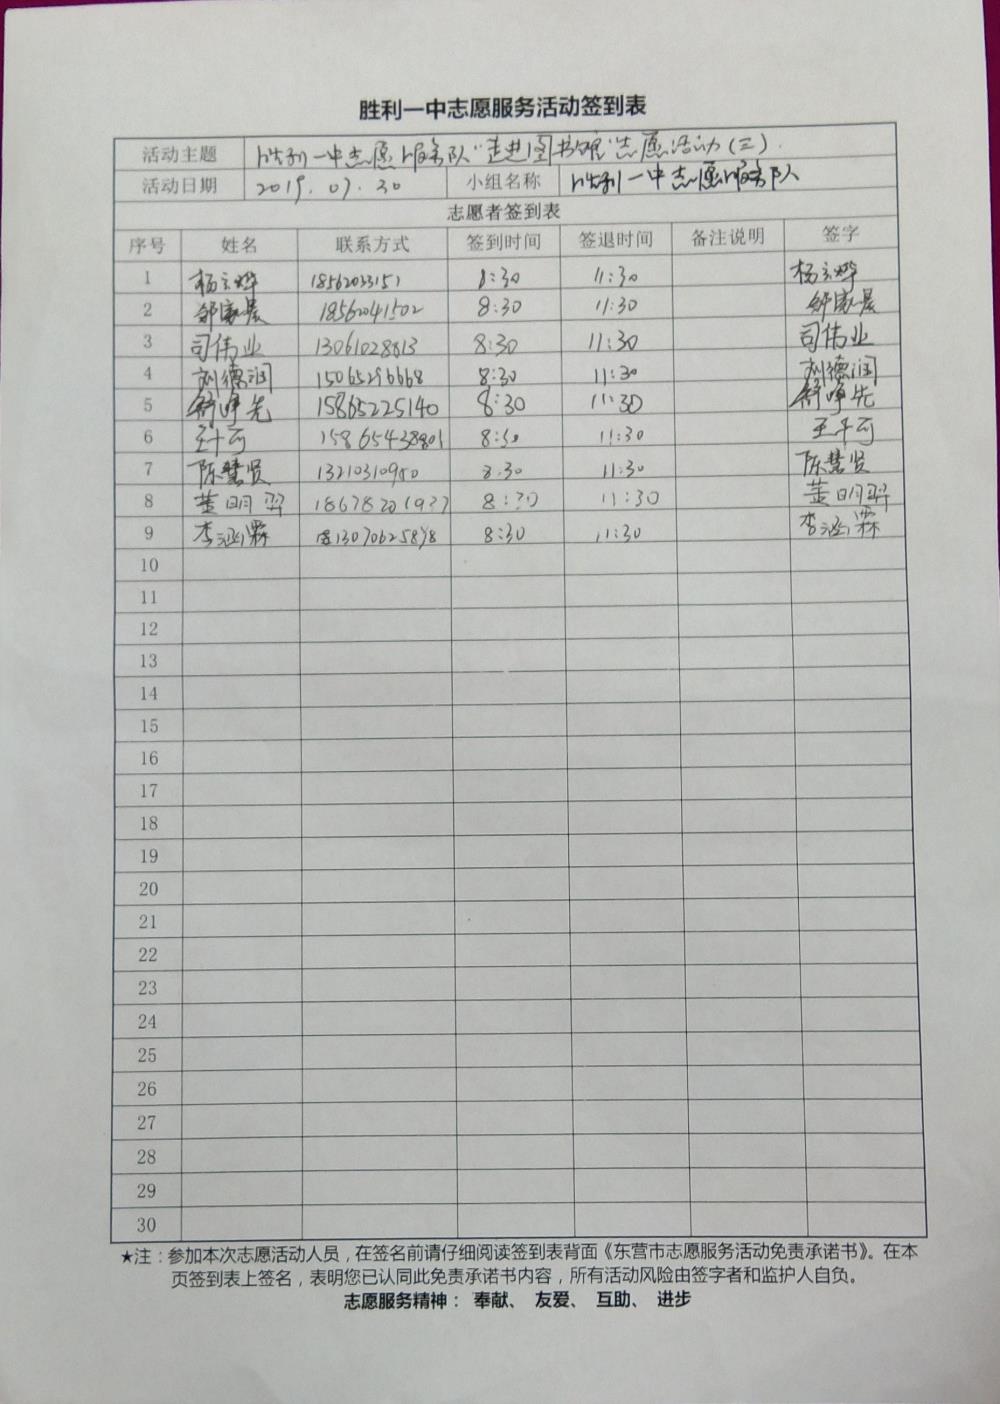 胜利一中志愿服务活动签到表
活动主题 胜利一中志愿服务队“走进图书馆”志愿活动(三).
活动日期 2019.07.30 小组名称 胜利一中志愿服务队
志愿者签到表
序号 姓名 联系方式 签到时间 签退时间 备注说明 签字
1 8:30 11:30
2 18562041502 8:30 11:30
3 司伟业 13061028813 8:30 11:30 司伟业
4 刘德润 15065296668 8:30 11:30 刘德润
5 舒峥先 15865225140 8:30 11:30 舒峥先
6 15865438801 8:30 11:30
7 陈慧贤 13210310950 8:30 11:30 陈慧贤
8 黄明羿 8:30 11:30 黄明羿
9 李涵霖 8:30 11:30 李涵霖
10
11
12
13
14
15
16
17
18
19
20
21
22
23
24
25
26
27
28
29
30
★注：参加本次志愿活动人员，在签名前请仔细阅读签到表背面《东营市志愿服务活动免责承诺书》。在本
页签到表上签名，表明您已认同此免责承诺书内容，所有活动风险由签字者和监护人自负。
志愿服务精神： 奉献、 友爱、 互助、 进步